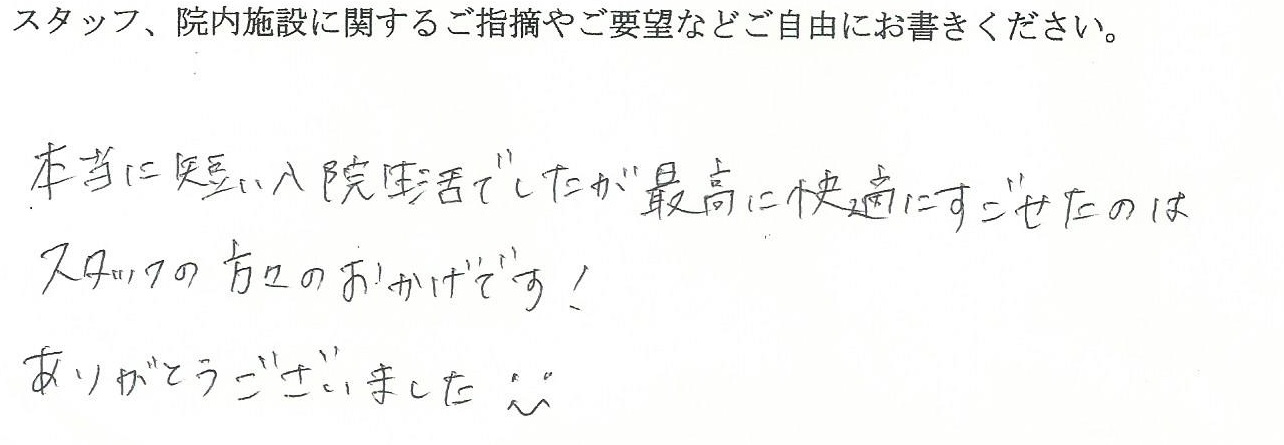 スタッフ、院内施設に関するご指摘やご要望などご自由にお書きください。
本当に短い入院生活でしたが最高に快適にすごせたのは
スタッフの方々のおかげです!
ありがとうございました